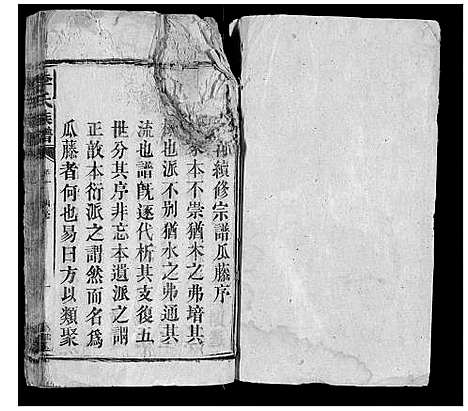 續修宗譜瓜藤序
本不崇猶木之弗培其
也派不別猶水之弗通其
流也譜旣逐代析其支復五
世分其序非忘本遺派之謂
正敨本衍派之謂然而名爲
瓜藤者何也易曰方以類聚
氏族譜